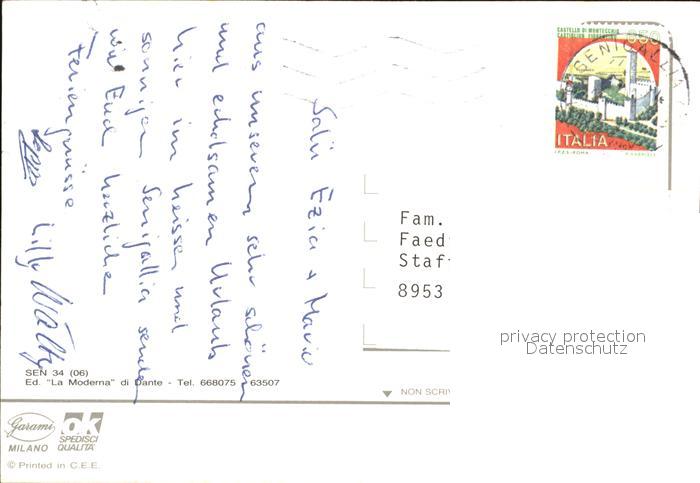 Salü Ezia + Mario
aus unserem sehr schönen
und erholsamen Urlaub
hier im heissen und
sonnigen Senigallia senden
wir Euch herzliche
Feriengrüsse
Lilly Wälty
CASTELLO DI MONTECCHIO
CASTIGLION FIORENTINO
850
ITALIA
I.P.Z.S.-ROMA
SENIGALLIA
Fam.
Faed
Staf
8953
privacy protection
Datenschutz
SEN 34 (06)
Ed. "La Moderna" di Dante - Tel. 668075 - 63507
NON SCRIV
Garami
MILANO
ok
SPEDISCI
QUALITA'
© Printed in C.E.E.